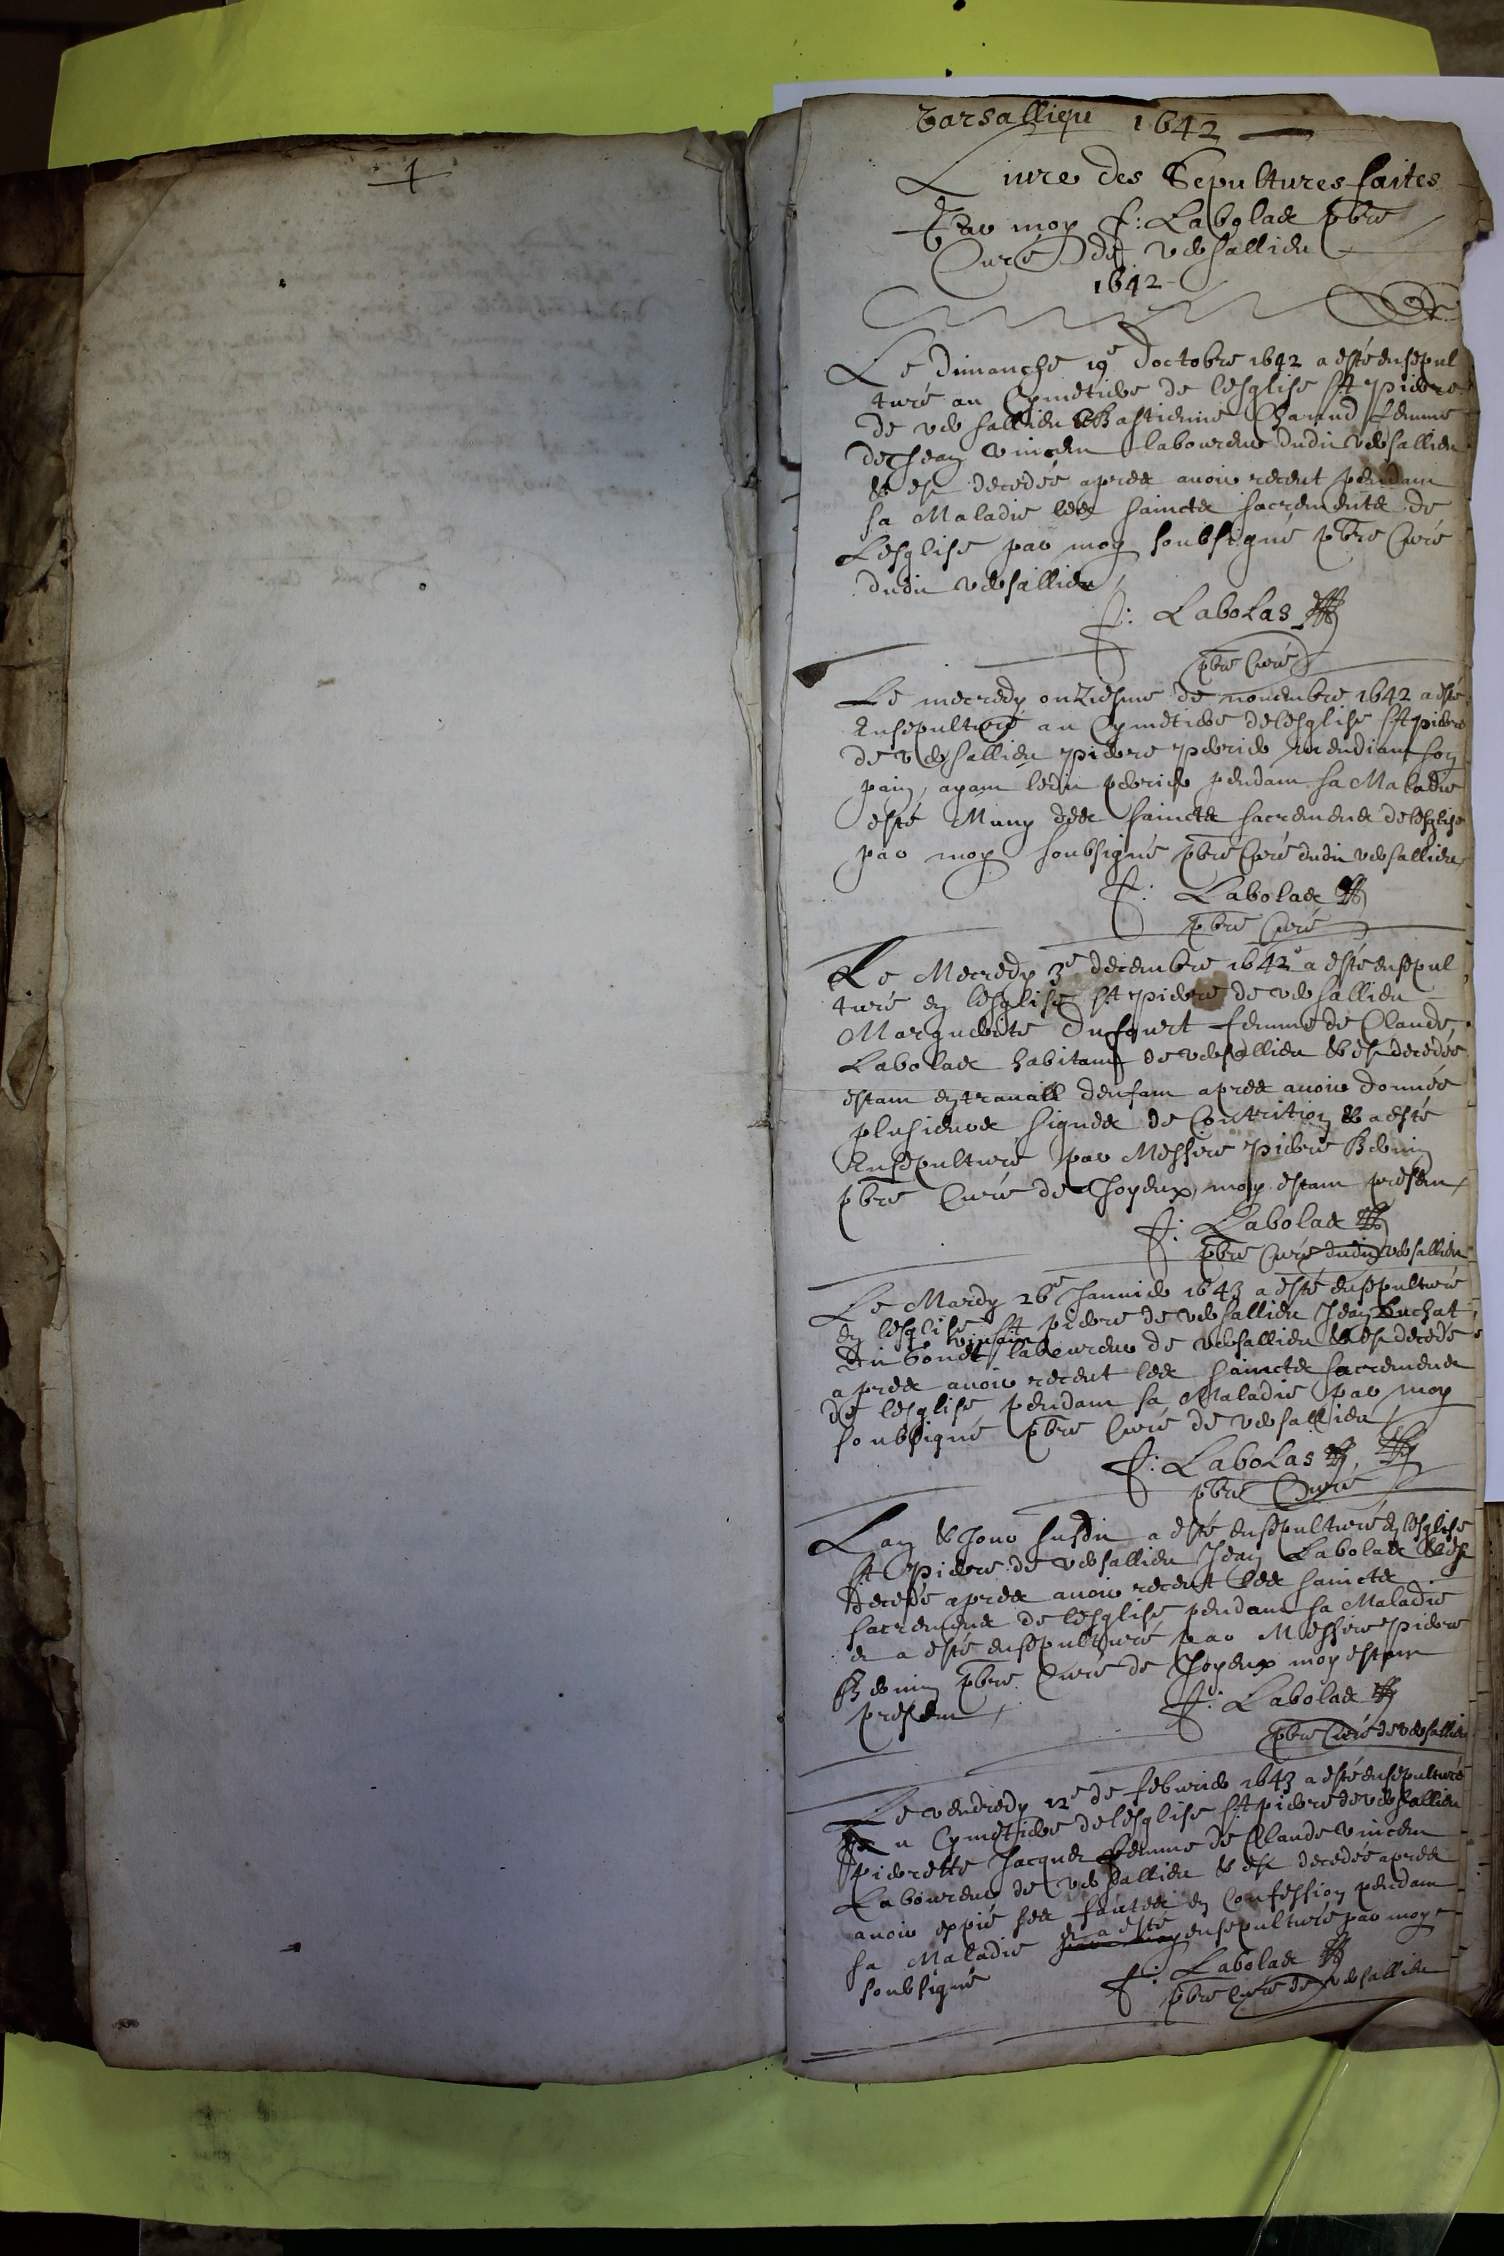 Varsallieu 1642
Livre des Sepultures faites
Par moy f: Labolas pbre
Curé de Versallieu
1642
Le dimanche 19e doctobre 1642 a esté ensepul
turé au Cymetiere de lesglise St Pierre
de versallieu Bastienne Charund femme
de Jean vincen laboureur dudit versallieu
& est decedée apres avoir receut pendan
sa Maladie les saincts sacrements de
Lesglise par moy soubsigné pbre Curé
dudit versallieu
f: Labolas
pbre Curé
Le mecredy onziesme de novembre 1642 a esté
Ensepulturé au Cymetiere de lesglise St pierre
de versallieu pierre perrier mendiant son
pain, ayant ledit perrier pendan sa Maladie
esté Muny des saincts sacremens de lesglise
par moy soubsigné pbre Curé dudit versallieu
f: Labolas
pbre Curé
Le Mecredy 3e decembre 1642 a esté ensepul
turé en lesglise St pierre de versallieu
Marguerite dufourt femme de Claude
Labolas habitant de versallieu & est decedée
estant en travail denfan apres avoir donnée
plusieurs signes de Contrition & a esté
Ensepulturé par Messire pierre Bernin
pbre Curé de Joyeux, moy estant present
f: Labolas
pbre Curé dudit versallieu
Le Mardy 26e Janvier 1643 a esté ensepulturé
en lesglise St pierre de versallieu Jean Buchat
vivant
dit Gonet laboureur de versallieu & est decedé
apres avoir receut les saincts sacremens
de lesglise pendan sa Maladie par moy
soubsigné pbre Curé de versallieu
f: Labolas
pbre Curé
Lan & Jour susdit a esté ensepulturé en lesglise
St Pierre de versallieu Jean Labolas & est
decedé apres avoir receut les saincts
sacremens de lesglise pendant sa Maladie
et a esté ensepulturé par Messire Pierre
Bernin pbre Curé de Joyeux moy estant
present
f: Labolas
pbre Curé de versallieu
Le vendredy 12e de febvrier 1643 a esté ensepulturé
au Cymetiere de lesglise St pierre de versallieu
pierrette Jacques femme de Claude vincen
Laboureur de versallieu & est decedée apres
avoir expié ses fautes en Confession pendan
et a esté
sa Maladie par moy ensepulturé par moy
soubsigné
f: Labolas
pbre Curé de versallieu